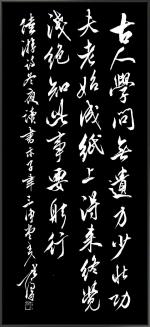 古人學問無遺力少壯功
夫老始成紙上得來終覺
淺絕知此事要躬行
陸游詩冬夜讀書示子聿